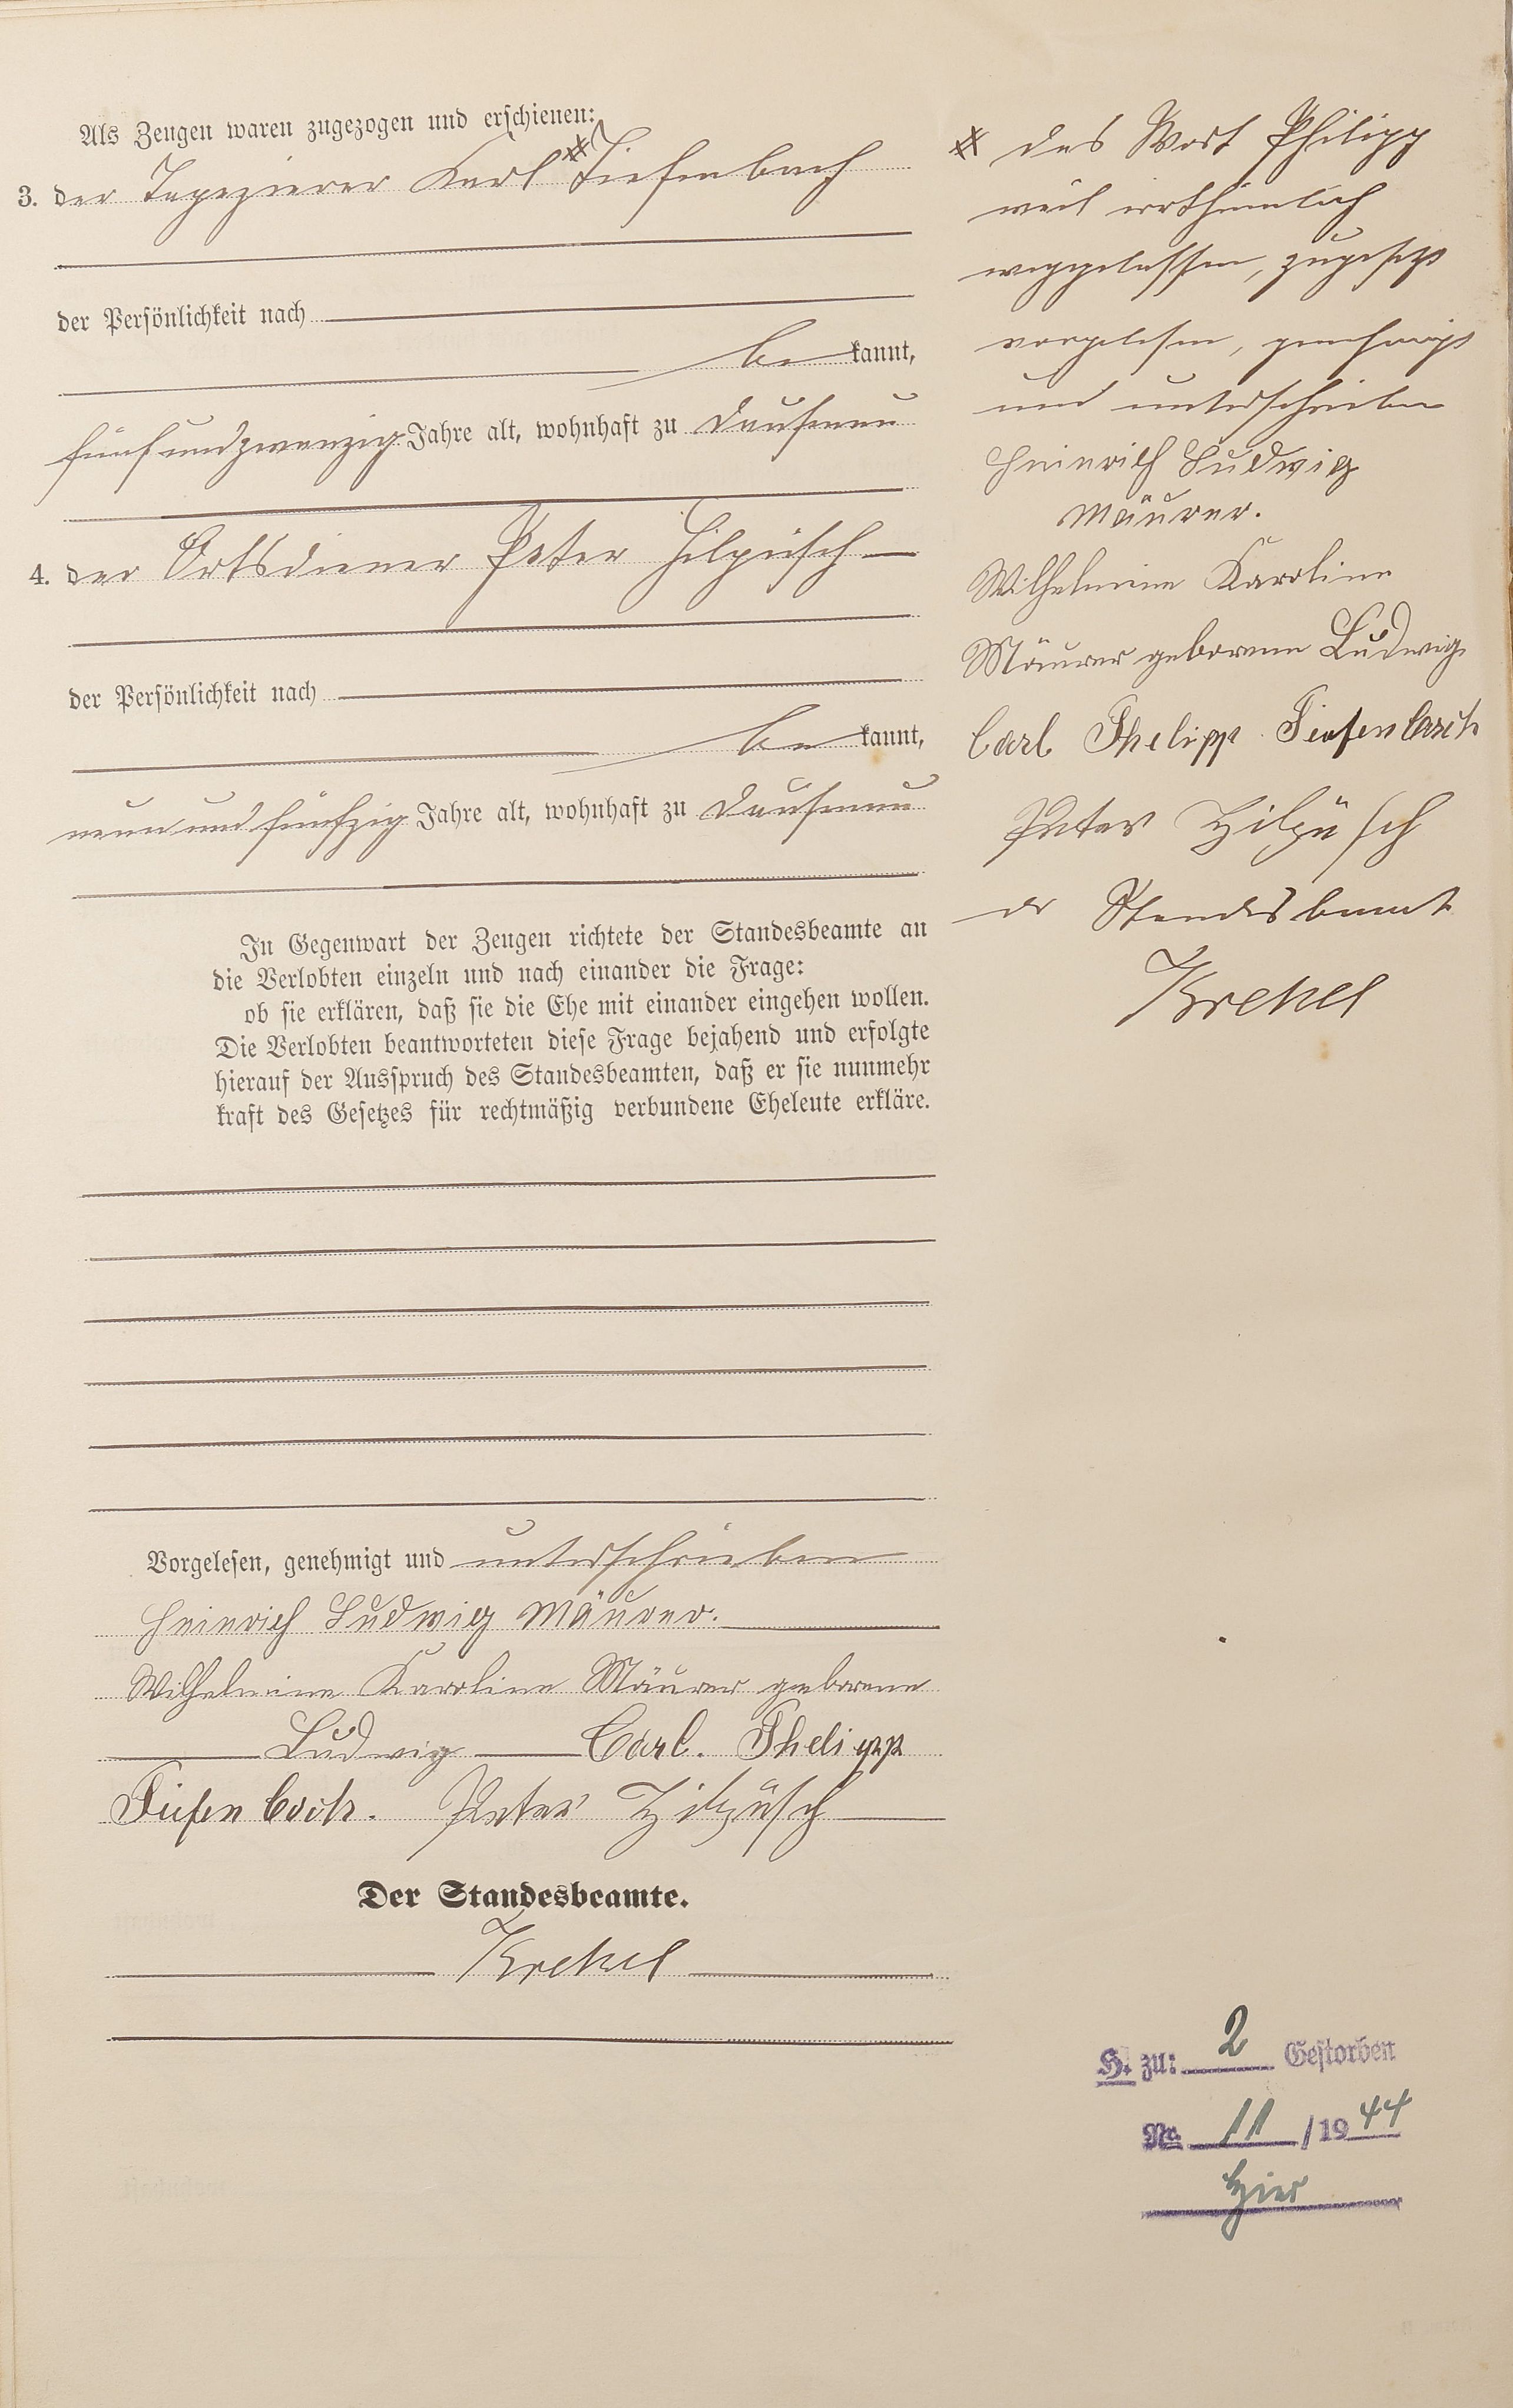 Als Zeugen waren zugezogen und erschienen:
3. der Tapezierer Karl # Tiefenbach
der Persönlichkeit nach
be kannt,
fünfundzwanzig Jahre alt, wohnhaft zu Dausenau
4. der Ortsdiener Peter Hilpüsch
der Persönlichkeit nach
be kannt,
neunundfünfzig Jahre alt, wohnhaft zu Dausenau
In Gegenwart der Zeugen richtete der Standesbeamte an
die Verlobten einzeln und nach einander die Frage:
ob sie erklären, daß sie die Ehe mit einander eingehen wollen.
Die Verlobten beantworteten diese Frage bejahend und erfolgte
hierauf der Ausspruch des Standesbeamten, daß er sie nunmehr
kraft des Gesetzes für rechtmäßig verbundene Eheleute erkläre.
Vorgelesen, genehmigt und unterschrieben
Heinrich Ludwig Mäurer.
Wilhelmine Karoline Mäurer geborene
Ludwig Carl. Phelipp
Tiefenbach. Peter Hilpüsch
Der Standesbeamte.
Krekel
# das Wort Philipp
weil irrthümlich
weggelassen, zugesetzt
vorgelesen, genehmigt
und unterschrieben
Heinrich Ludwig
Mäurer.
Wilhelmine Karoline
Mäurer geborene Ludwig
Carl Phelipp Tiefenbach
Peter Hilpüsch
der Standesbeamt
Krekel
H. zu: 2 Gestorben
No. 11 /1944
hier